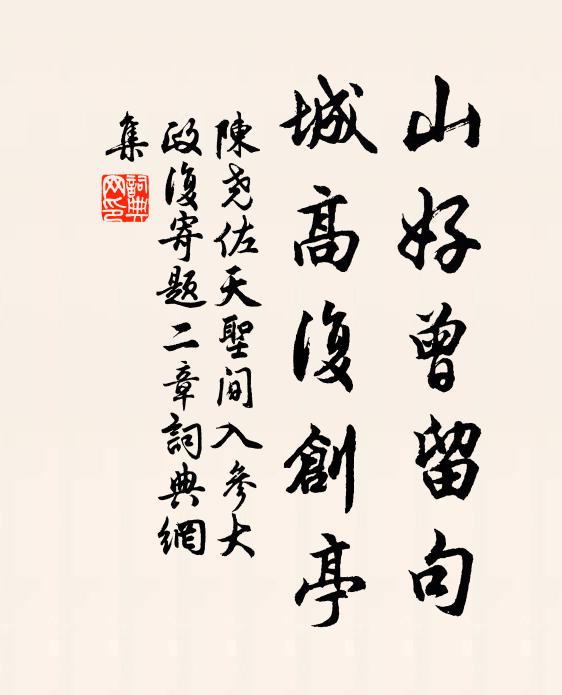 山好曾留句
城高復創亭
陳堯佐天聖間入參大
政復寄題二章詞典網
集
詞典
网印